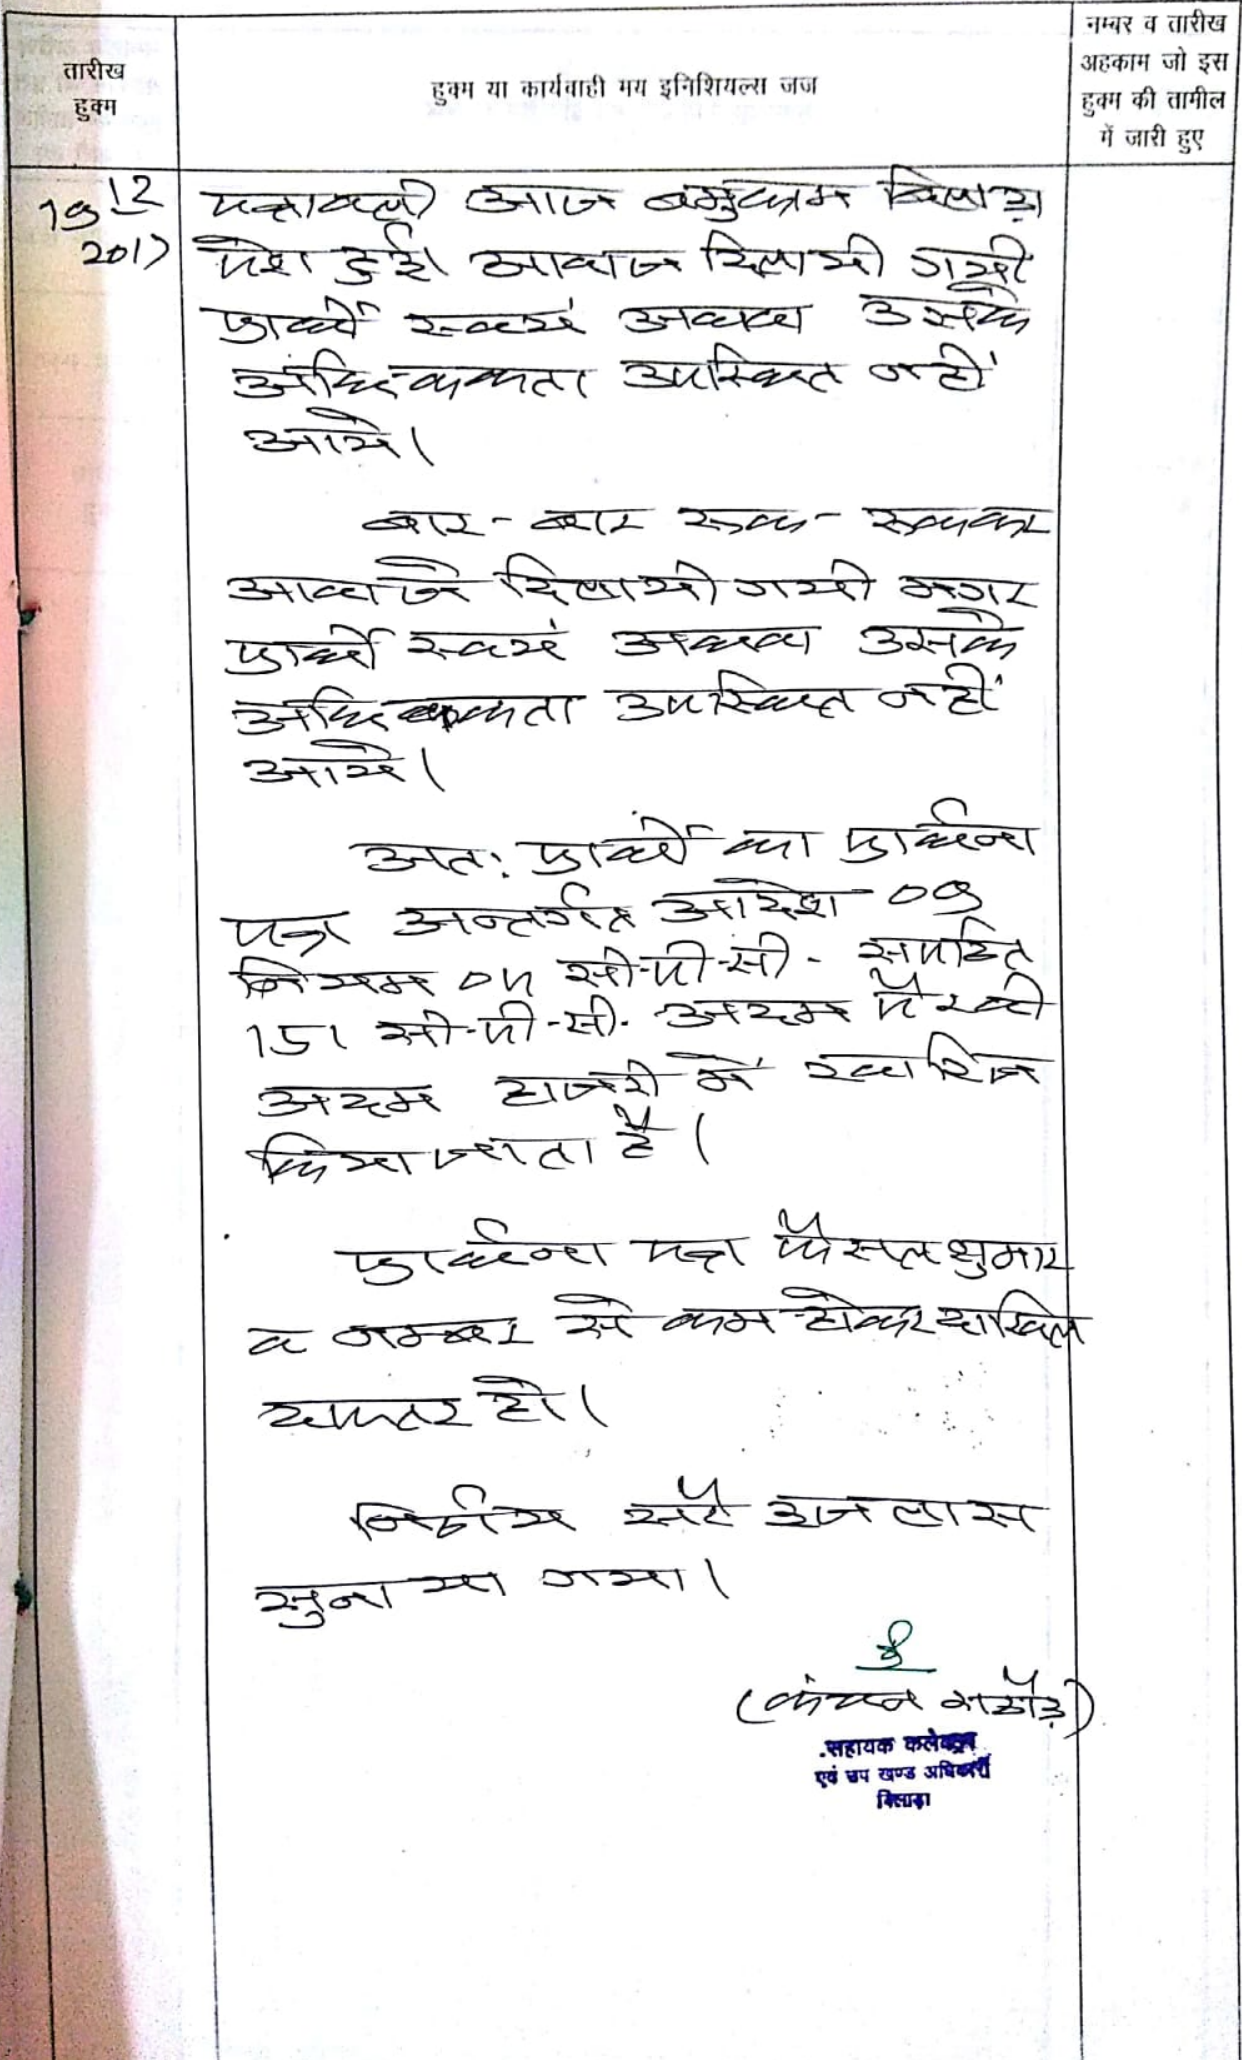 तारीख
हुक्म
हुक्म या कार्यवाही मय इनिशियल्स जज
नम्बर व तारीख
अहकाम जो इस
हुक्म की तामील
में जारी हुए
19 12
2017
पत्रावली आज बमुकाम बिलाड़ा
पेश हुई। आवाज दिलायी गयी
प्रार्थी स्वयं अथवा उसके
अधिवक्ता उपस्थित नहीं
आये।
बार-बार रूक-रूककर
आवाजे दिलायी गयी मगर
प्रार्थी स्वयं अथवा उसके
अधिवक्ता उपस्थित नहीं
आये।
अतः प्रार्थी का प्रार्थना
पत्र अन्तर्गत आदेश 09
नियम 04 सी.पी.सी. सपठित
151 सी.पी.सी. अदम पैरवी
अदम हाजरी में खारिज
किया जाता है।
प्रार्थना पत्र फैसल शुमार
व नम्बर से कम होकर दाखिल
दफ्तर हो।
निर्णय सरे इजलास
सुनाया गया।
(कंचन राठौड़)
सहायक कलेक्टर
एवं उप खण्ड अधिकारी
बिलाड़ा